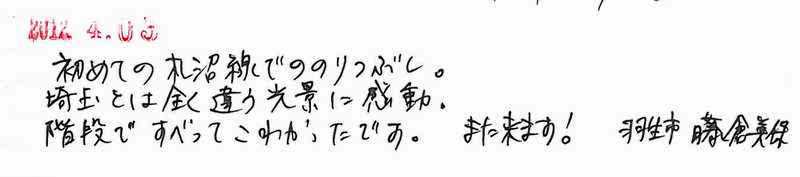 2012. 4. 05
初めての札沼線でののりつぶし。
埼玉とは全く違う光景に感動。
階段ですべってこわかったです。 また来ます! 羽生市 藤倉美保